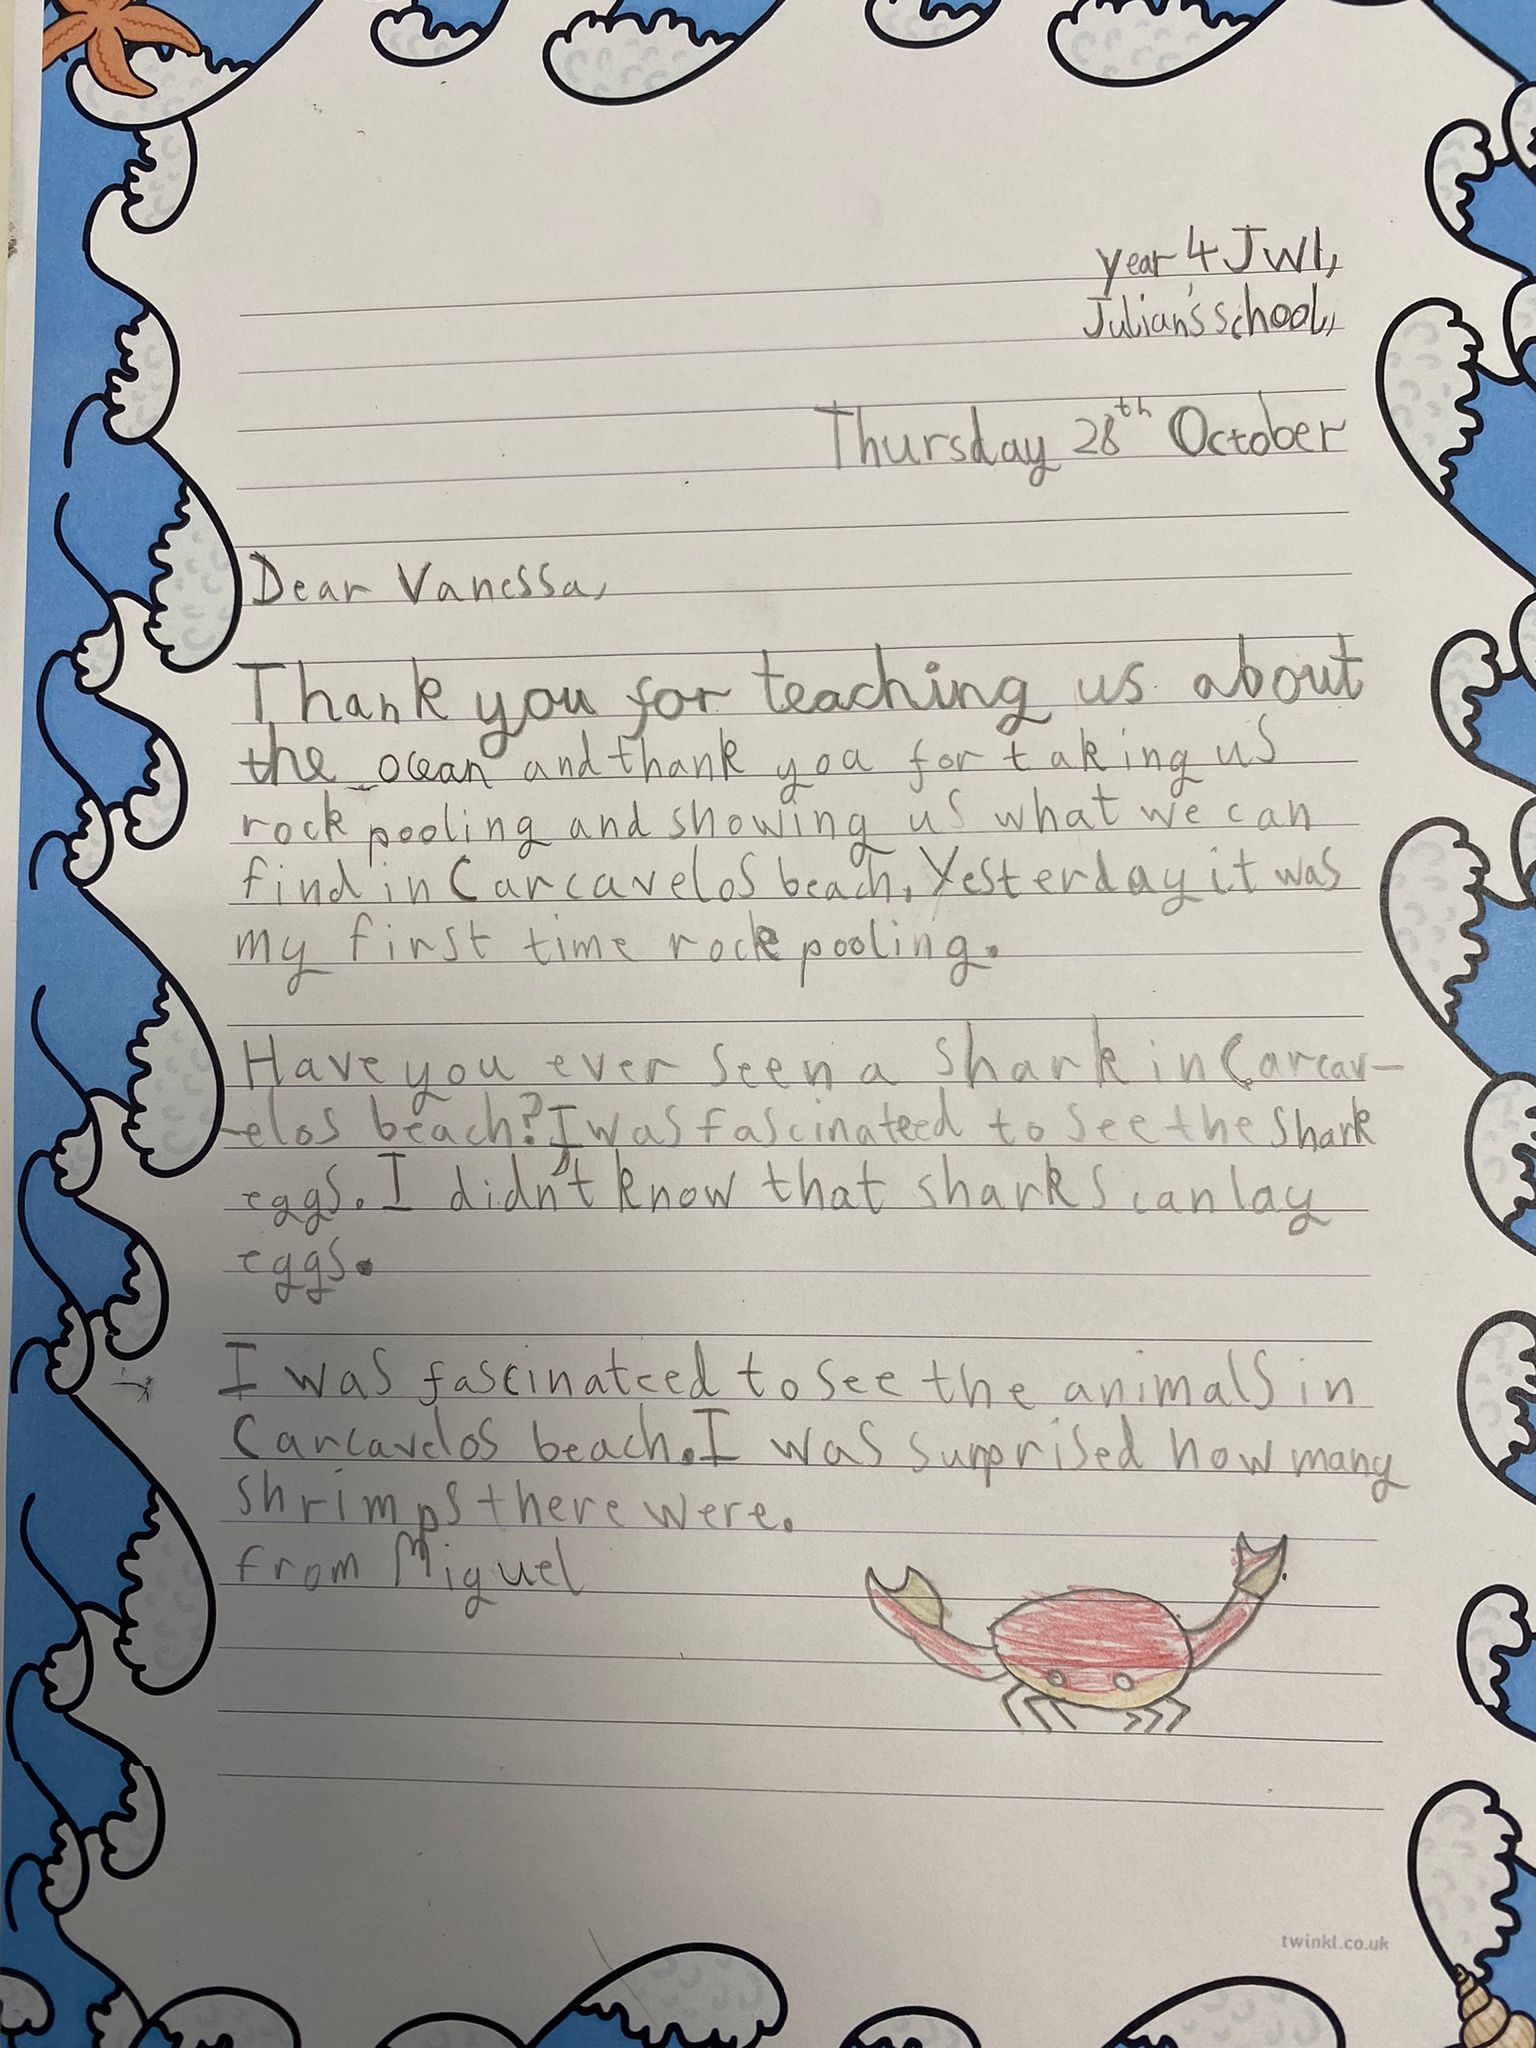 year 4 JW1,
Julian's school,
Thursday 28th October
Dear Vanessa,
Thank you for teaching us about
the ocean and thank you for taking us
rock pooling and showing us what we can
find in Carcavelos beach. Yesterday it was
my first time rock pooling.
Have you ever seen a shark in Carcav-
-elos beach? I was fascinateed to see the shark
eggs. I didn't know that sharks can lay
eggs.
I was fascinateed to see the animals in
Carcavelos beach. I was surprised how many
shrimps there were.
from Miguel
twinkl.co.uk